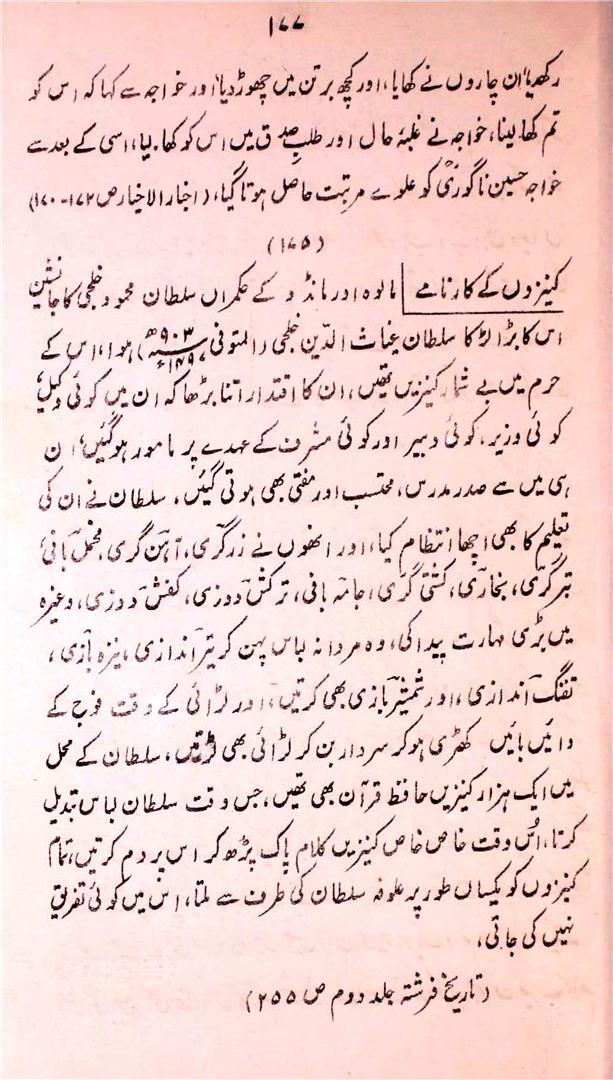 ۱۷۷
رکھدیا، ان چاروں نے کھایا، اور کچھ برتن میں چھوڑدیا، اور خواجہ سے کہا کہ اس کو
تم کھا لینا، خواجہ نے غلبۂ حال اور طلبِ صدق میں اس کو کھا لیا، اسی کے بعد سے
خواجہ حسین ناگوریؒ کو علوے مرتبت حاصل ہوتا گیا، (اخبار الاخیار ص ۱۷۲-۱۷۰)
(۱۷۵)
کنیزوں کے کارنامے مالوہ اور مانڈو کے حکمراں سلطان محمود خلجی کا جانشین
اس کا بڑا لڑکا سلطان غیاث الدین خلجی (المتوفی ۹۰۳ھ ۱۴۹۷ء) ہوا، اس کے
حرم میں بے شمار کنیزیں تھیں، ان کا اقتدار اتنا بڑھا کہ ان میں کوئی وکیل،
کوئی وزیر، کوئی دبیر اور کوئی مشرف کے عہدے پر مامور ہوگئیں، ان
ہی میں سے صدر مدرس، محتسب اور مفتی بھی ہوتی گئیں، سلطان نے ان کی
تعلیم کا بھی اچھا انتظام کیا، اور انھوں نے زرگری، آہن گری، مخمل بافی
تبرگری، نجاری، کشتی گری، جامہ بافی، ترکش دوزی، کفش دوزی، وغیرہ
میں بڑی مہارت پیدا کی، وہ مردانہ لباس پہن کر تیراندازی، نیزہ بازی،
تفنگ اندازی، اور شمشیر بازی بھی کرتیں، اور لڑائی کے وقت فوج کے
دائیں بائیں کھڑی ہوکر سردار بن کر لڑائی بھی لڑتیں، سلطان کے محل
میں ایک ہزار کنیزیں حافظ قرآن بھی تھیں، جس وقت سلطان لباس تبدیل
کرتا، اُس وقت خاص خاص کنیزیں کلام پاک پڑھ کر اس پر دم کرتیں، تمام
کنیزوں کو یکساں طور پر علوفہ سلطان کی طرف سے ملتا، اس میں کوئی تفریق
نہیں کی جاتی،
(تاریخ فرشتہ جلد دوم ص ۲۵۵)